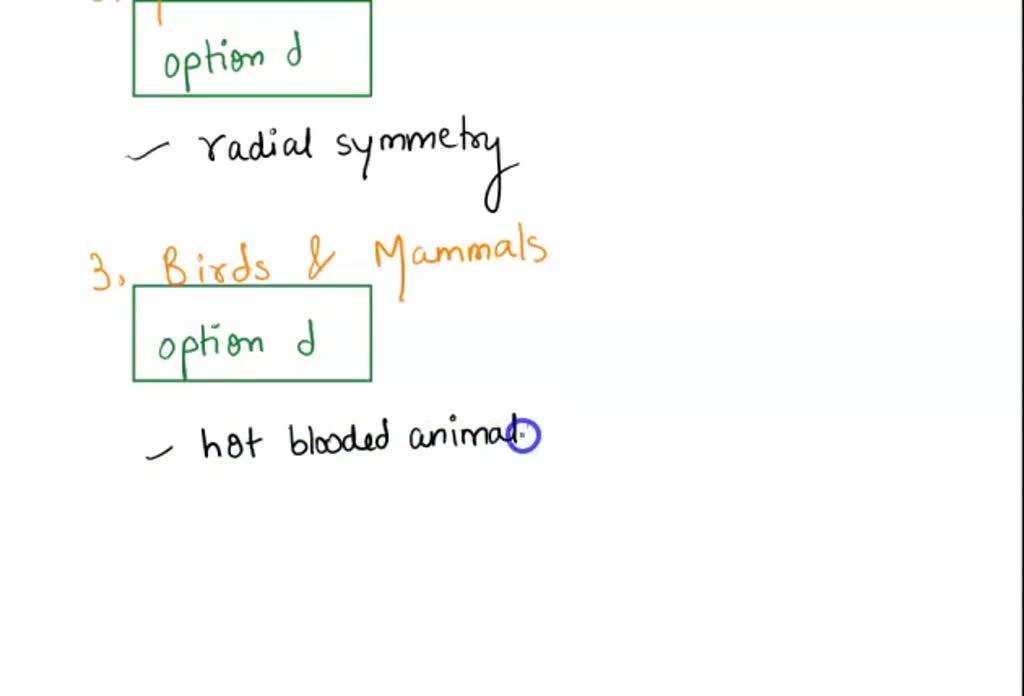 option d
radial symmetry
3. Birds & Mammals
option d
hot blooded animal